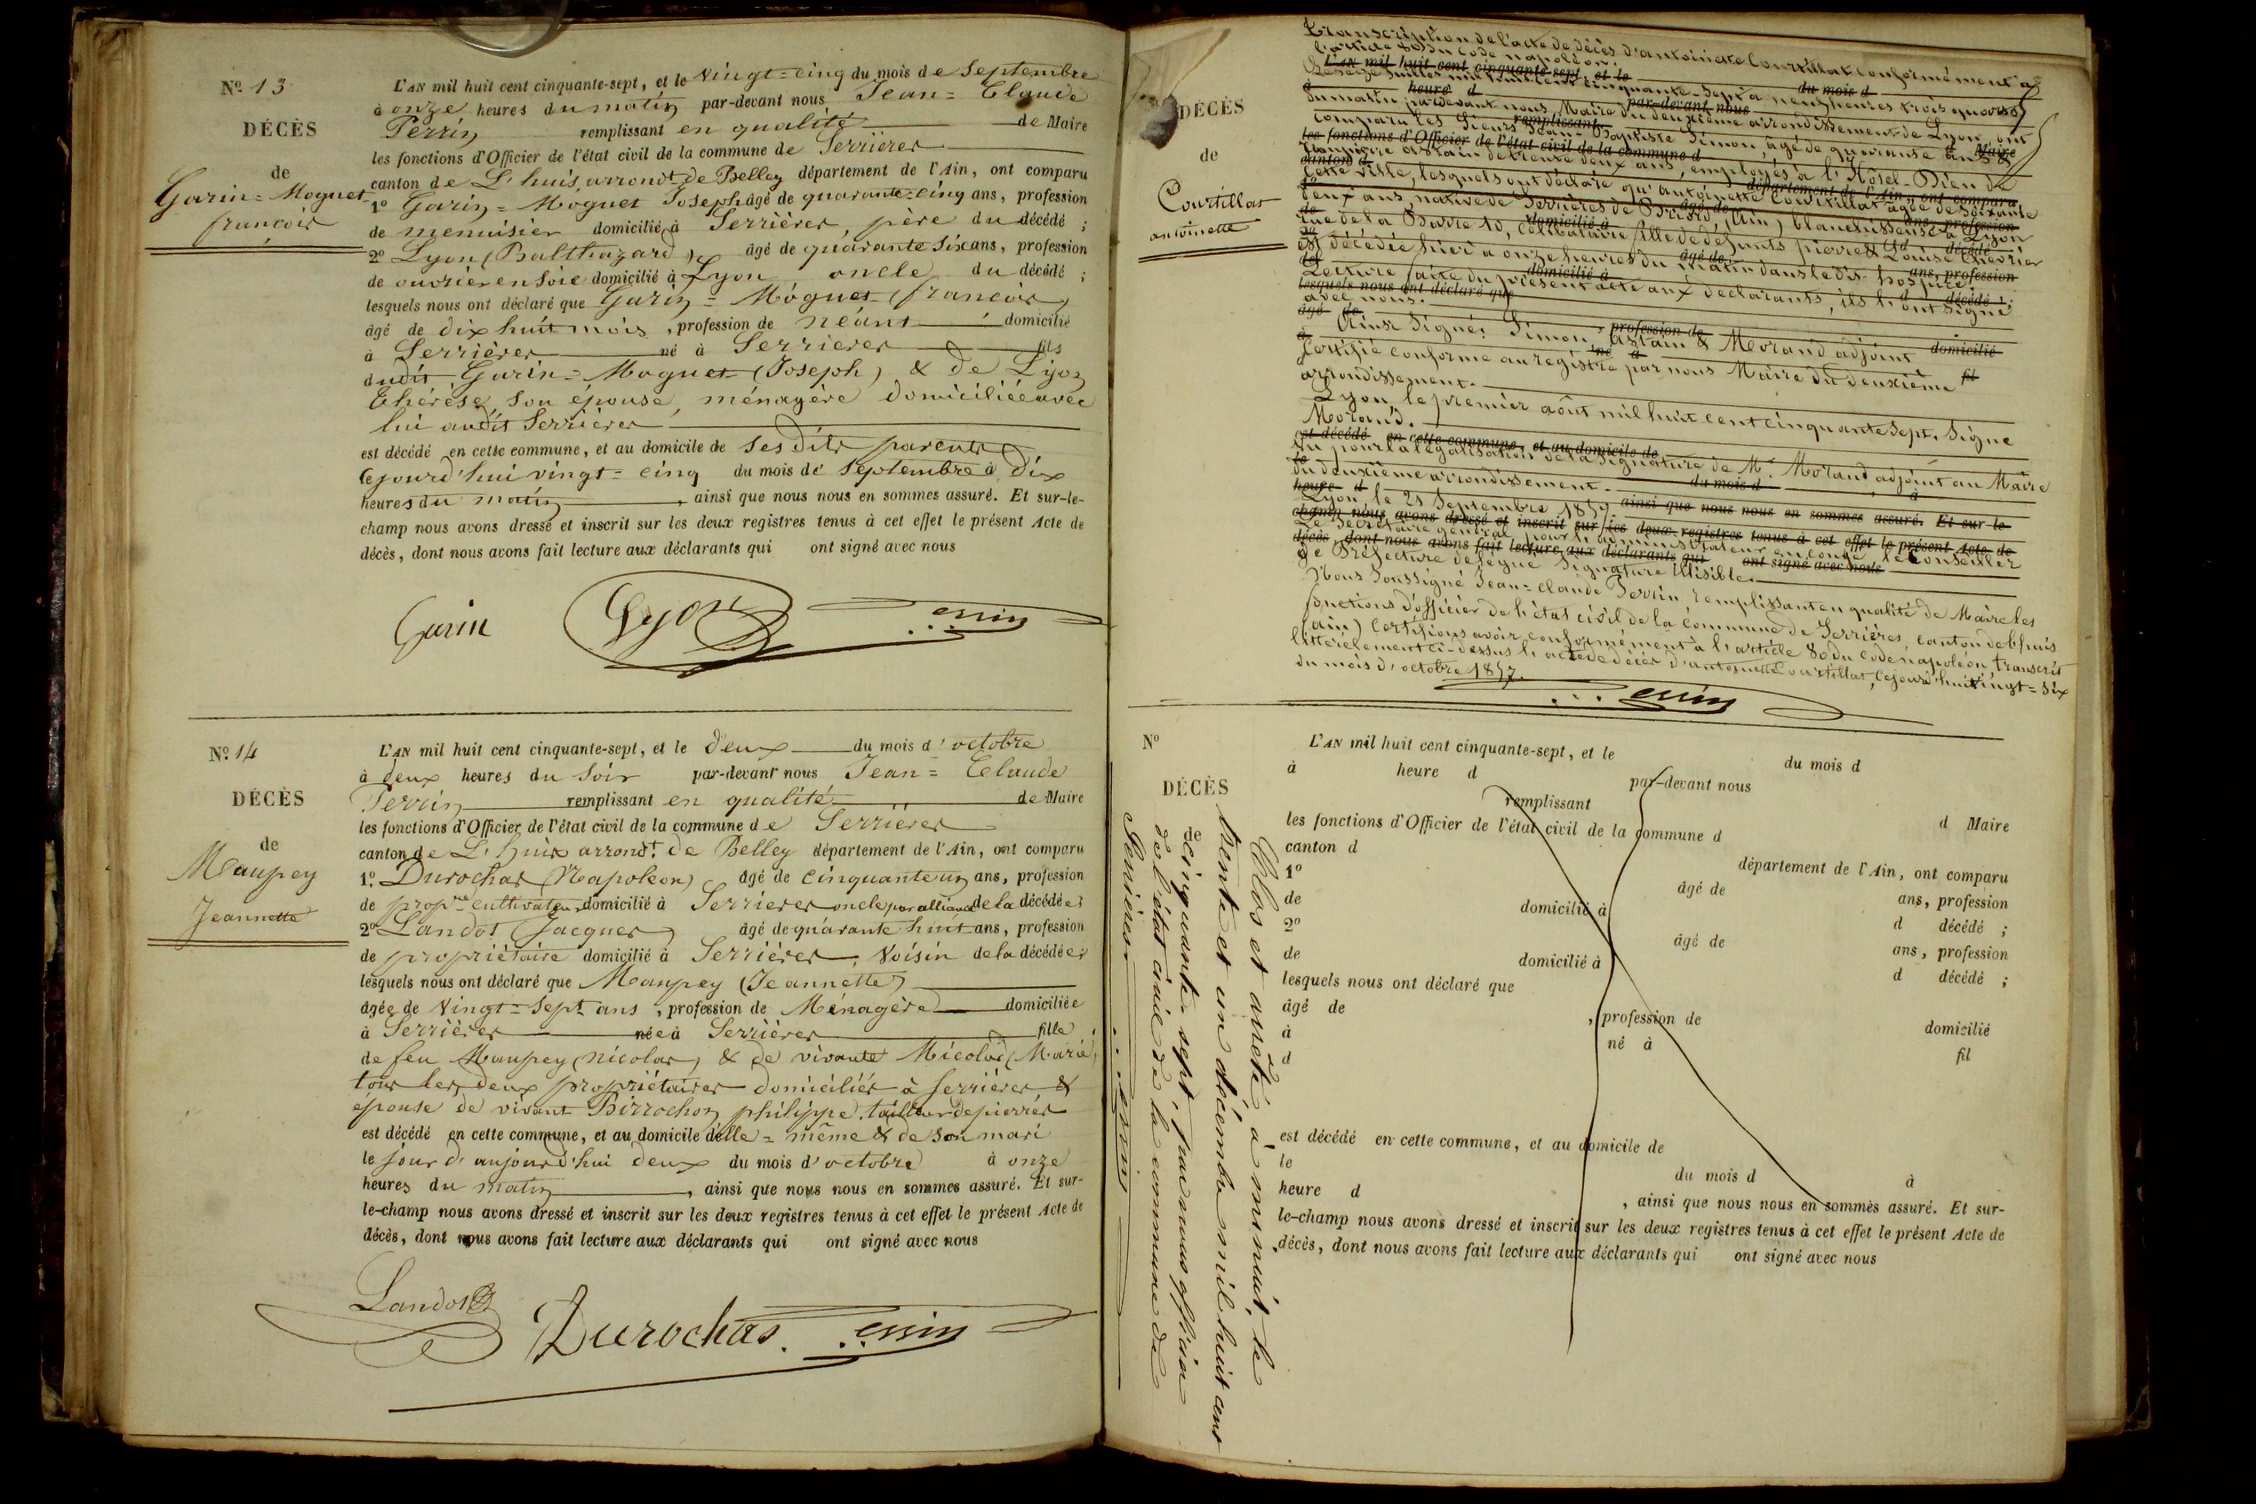 Nº 13
DÉCÈS
de
Garin=Moguet
françois
L'AN mil huit cent cinquante-sept, et le vingt=cinq du mois de Septembre
à onze heures du matin par-devant nous Jean=Claude
Perrin remplissant en qualité de Maire
les fonctions d'Officier de l'état civil de la commune de Serrières
canton de L'huis arrondt de Belley département de l'Ain, ont comparu
1º Garin=Moguet Joseph âgé de quarante=cinq ans, profession
de menuisier domicilié à Serrières, père du décédé ;
2º Lyon (Balthazard) âgé de quarante six ans, profession
de ouvrier en soie domicilié à Lyon oncle du décédé ;
lesquels nous ont déclaré que Garin=Moguet (françois)
âgé de dix huit mois, profession de néant domicilié
à Serrières né à Serrières fils
dudit Garin=Moguet (Joseph) & de Lyon
Thérèse, son épouse, ménagère domiciliée avec
lui audit Serrières
est décédé en cette commune, et au domicile de ses dits parents
cejourd'hui vingt=cinq du mois de septembre à dix
heures du matin, ainsi que nous nous en sommes assuré. Et sur-le-
champ nous avons dressé et inscrit sur les deux registres tenus à cet effet le présent Acte de
décès, dont nous avons fait lecture aux déclarants qui ont signé avec nous
Garin Lyon Perrin
Nº 14
DÉCÈS
de
Maupey
Jeannette
L'AN mil huit cent cinquante-sept, et le deux du mois d'octobre
à deux heures du soir par-devant nous Jean=Claude
Perrin remplissant en qualité de Maire
les fonctions d'Officier de l'état civil de la commune de Serrières
canton de L'huis arrondt de Belley département de l'Ain, ont comparu
1º Durochas (Napoléon) âgé de cinquante un ans, profession
de propre cultivateur domicilié à Serrières oncle par alliance de la décédée ;
2º Landos (Jacques) âgé de quarante huit ans, profession
de propriétaire domicilié à Serrières, voisin de la décédée ;
lesquels nous ont déclaré que Maupey (Jeannette)
âgée de vingt=sept ans, profession de Ménagère domiciliée
à Serrières née à Serrières fille
de feu Maupey (nicolas) & de vivante Micolod (Marie)
tous les deux propriétaires domiciliés à serrières &
épouse de vivant Birrochon philippe tailleur de pierres
est décédé en cette commune, et au domicile d'elle=même & de son mari
le jour d'aujourd'hui deux du mois d'octobre à onze
heures du matin, ainsi que nous nous en sommes assuré. Et sur-
le-champ nous avons dressé et inscrit sur les deux registres tenus à cet effet le présent Acte de
décès, dont nous avons fait lecture aux déclarants qui ont signé avec nous
Landos Durochas. Perrin
DÉCÈS
de
Courtillat
antoinette
Transcription de l'acte de décès d'antoinette Courtillat conformément à
l'article 80 du code napoléon.
L'AN mil huit cent cinquante sept, et le du mois d
Le seize juillet mil huit cent cinquante-sept à neuf heures trois quarts
heure d par-devant nous
du matin pardevant nous Maire du deuxième arrondissement de Lyon, ont
remplissant d Maire
comparu les Sieurs Jean-Baptiste Simon, âgé de quarante ans &
les fonctions d'Officier de l'état civil de la commune d
astain de trente deux ans, employés à l'Hôtel-Dieu de
canton d département de l'Ain, ont comparu
cette ville, lesquels ont déclaré qu'antoinette Courtillat âgée de soixante
âgé de ans, profession
deux ans, native de Serrières de Briord, (Ain), blanchisseuse à Lyon
de domicilié à d décédé
rue de la Barre 10, célibataire fille de défunts pierre & Louise Chevrier
âgé de ans, profession
est décédée hier à onze heures du matin dans le dit hospice
de domicilié à d décédé ;
Lecture faite du présent acte aux déclarants, ils l'ont signé
lesquels nous ont déclaré que
avec nous.
âgé de profession de domicilié
Ainsi Signé: Simon, astain & Morand adjoint
à né à fil
Certifié conforme au registre par nous Maire du deuxième
arrondissement.
Lyon, le premier août mil huit cent cinquante sept. Signé
Morand.
est décédé en cette commune, et au domicile de
Vu pour la légalisation de la signature de Mr. Morand adjoint au Maire
le du mois d à
du deuxième arrondissement.
heure d ainsi que nous nous en sommes assuré. Et sur-le-
Lyon, le 21 Septembre 1857.
champ nous avons dressé et inscrit sur les deux registres tenus à cet effet le présent Acte de
Le Secrétaire général pour l'administrateur en congé le Conseiller
décès, dont nous avons fait lecture aux déclarants qui ont signé avec nous
de Préfecture délégué Signature illisible.
Nous soussigné Jean=Claude Perrin, remplissant en qualité de Maire les
fonctions d'officier de l'état civil de la commune de Serrières, canton de Lhuis
(ain) certifions avoir conformément à l'article 80 du code napoléon, transcrit
littéralement ci-dessus l'acte de décès d'antoinette Courtillat, cejourd'hui vingt=six
du mois d'octobre 1857.
Perrin
Nº
DÉCÈS
de
L'AN mil huit cent cinquante-sept, et le du mois d
à heure d par-devant nous
remplissant d Maire
les fonctions d'Officier de l'état civil de la commune d
canton d département de l'Ain, ont comparu
1º âgé de ans, profession
de domicilié à d décédé ;
2º âgé de ans, profession
de domicilié à d décédé ;
lesquels nous ont déclaré que
âgé de , profession de domicilié
à né à fil
d
est décédé en cette commune, et au domicile de
le du mois d à
heure d , ainsi que nous nous en sommes assuré. Et sur-
le-champ nous avons dressé et inscrit sur les deux registres tenus à cet effet le présent Acte de
décès, dont nous avons fait lecture aux déclarants qui ont signé avec nous
Clos et arrêté à minuit, le
trente et un décembre mil huit cent
cinquante-sept, par nous officier
de l'état civil de la commune de
Serrières.
Perrin